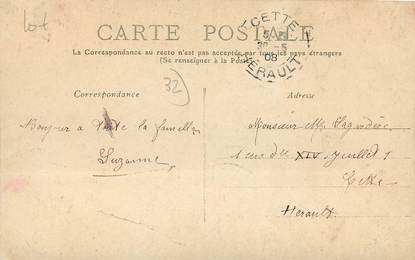 Lot
CARTE POSTALE
La Correspondance au recto n'est pas acceptée par tous les pays étrangers
(Se renseigner à la Poste)
CETTE
30 -5
08
HERAULT
32
Correspondance
Adresse
Bonjour a toute la famille
Suzanne
Monsieur
rue du XIV Juillet 1
Cette
Herault